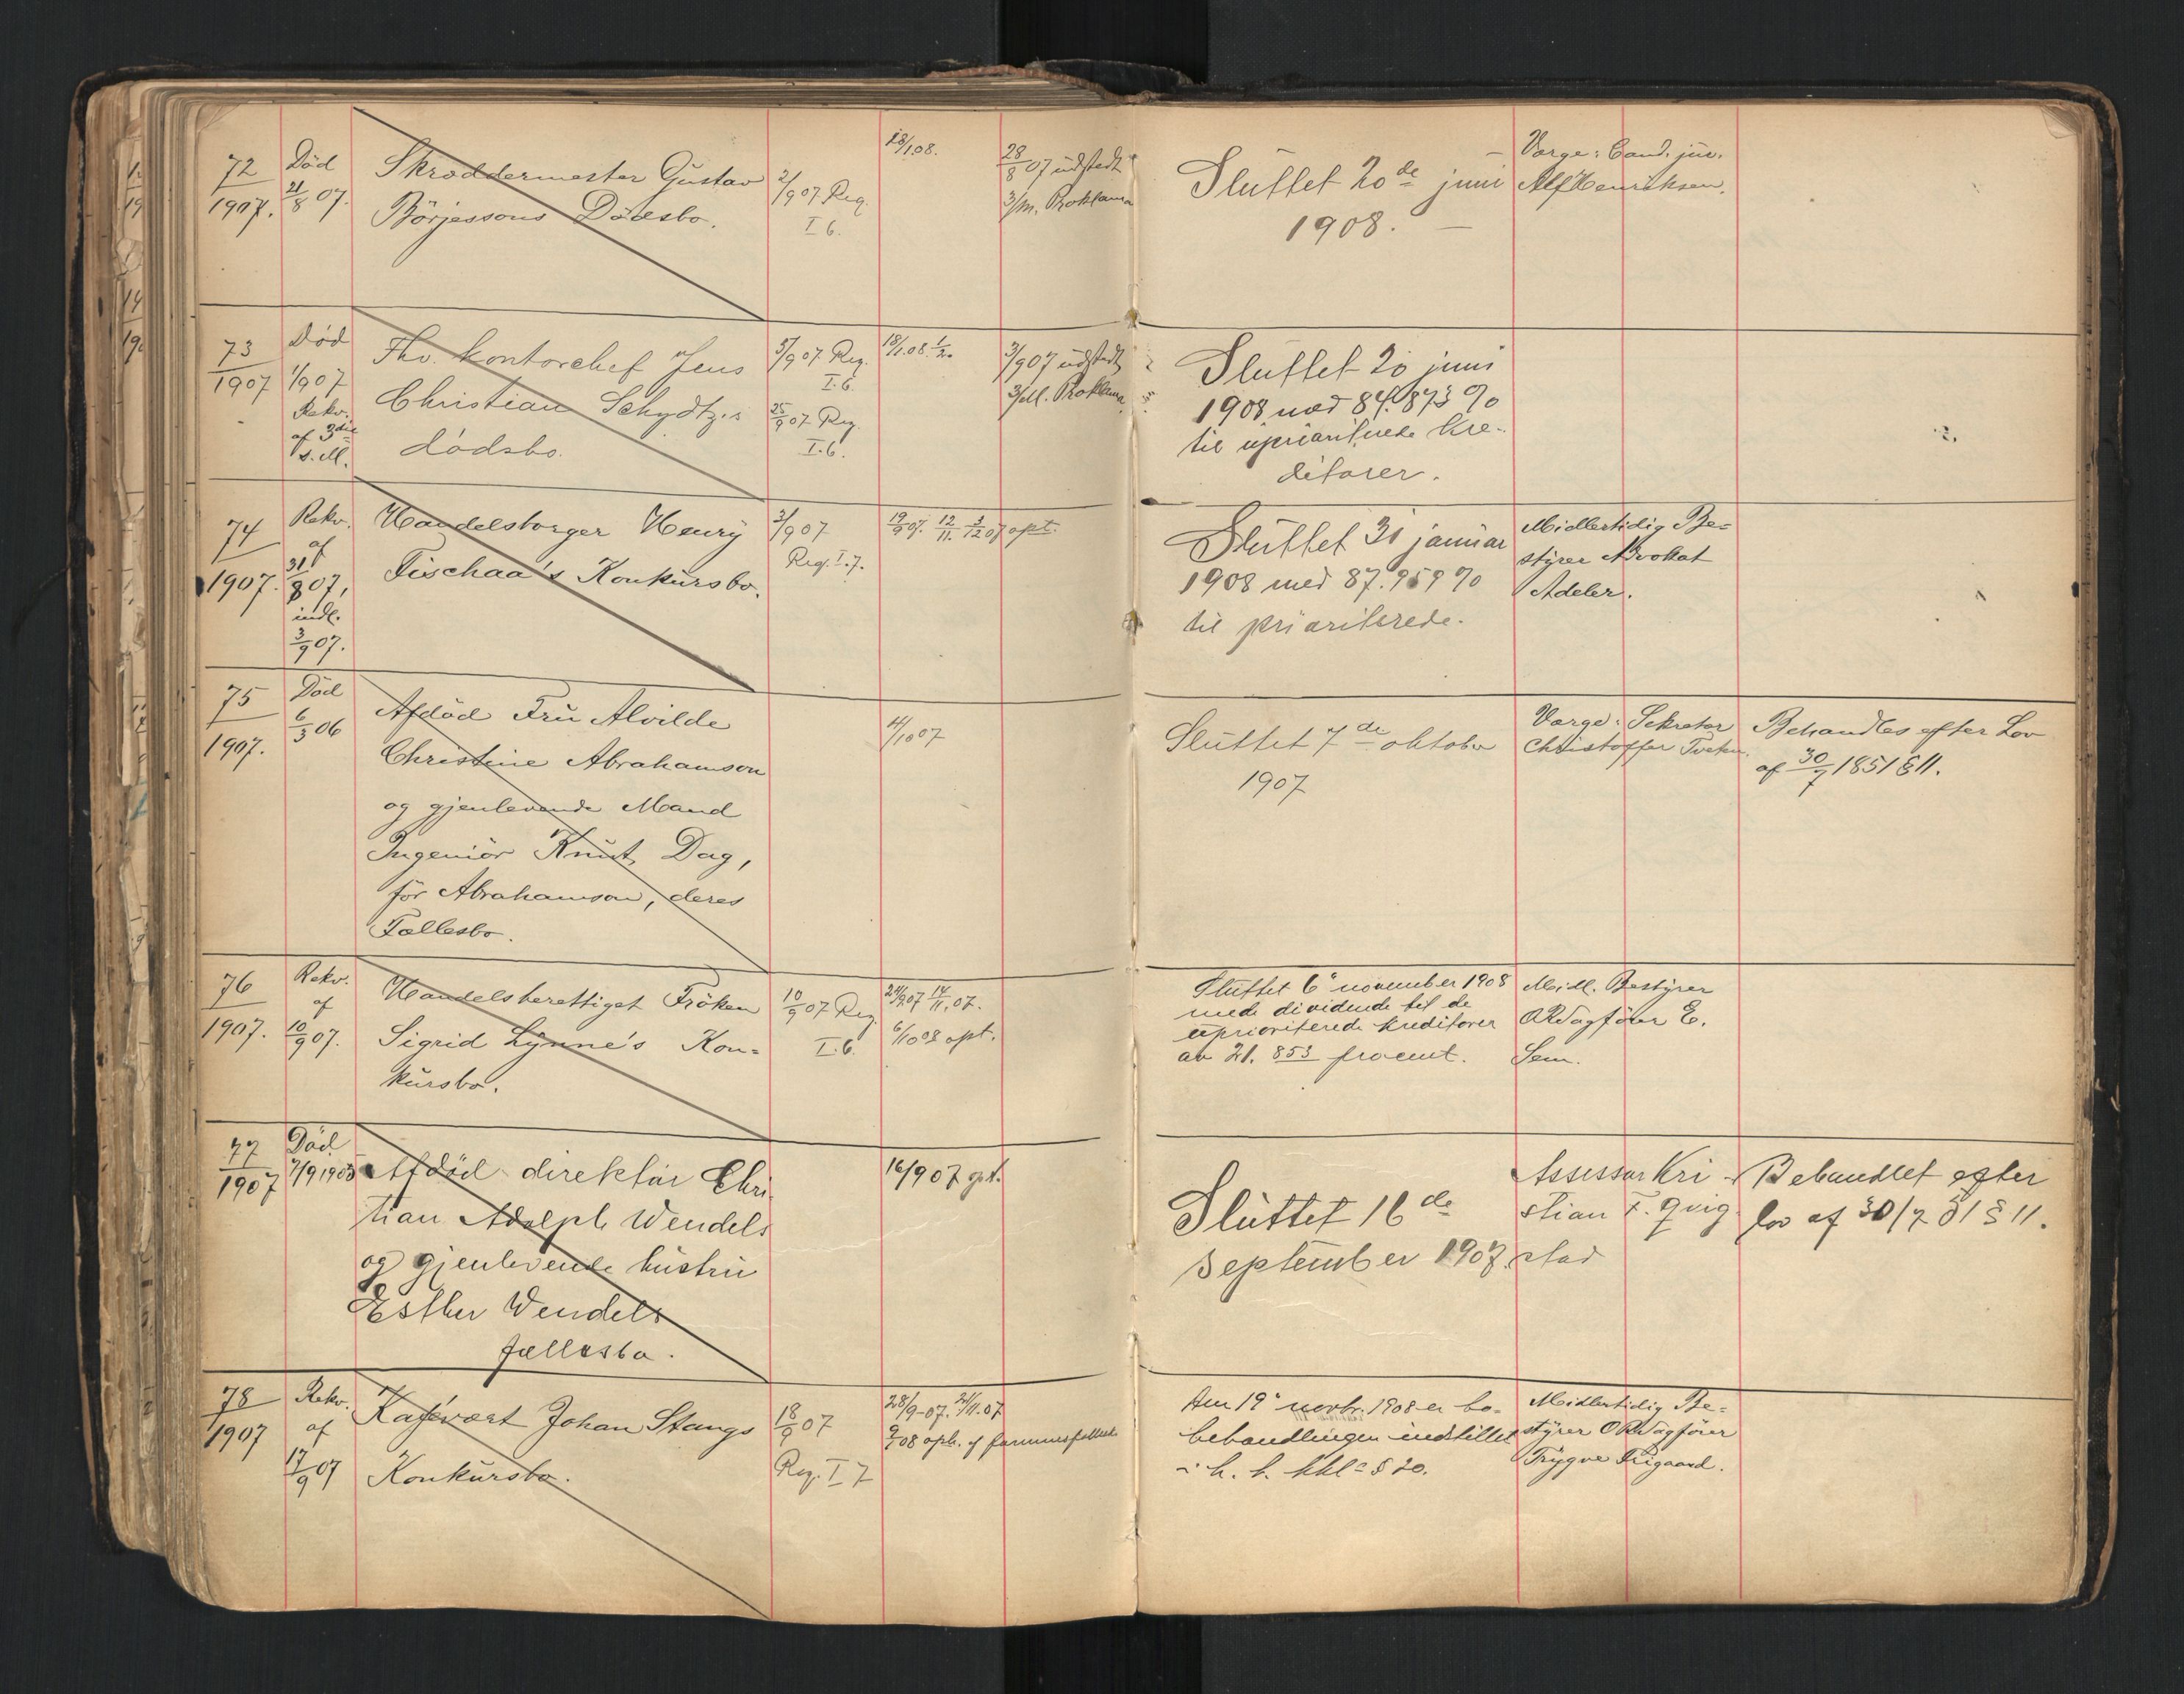 72
1907.
Död
21/8 07.
Skræddermester Gustav
Börjessons Dödsbo.
2/9 07 Reg.
I 6.
18/1 08.
28/8 07 udstedt
3/m. Proklama
Sluttet 20de juni
1908.
Værge: Cand. jur.
Alf Henriksen.
73
1907
Död
1/9 07
Rekv.
af 3die
s. M.
Fhv. kontorchef Jens
Christian Schydtz's
dödsbo.
5/9 07 Reg.
I.6.
25/9 07 Reg.
I.6.
18/1 08.
3/9 07 udstedt
3/M. Proklama
Sluttet 20 juni
1908 med 84.873 %
til uprioriterede kre-
ditorer.
74
1907.
Rekv.
af
31/8 07,
indl.
3/9 07.
Handelsborger Henry
Fischaa's Konkursbo.
3/9 07
Reg. I.7.
19/9 07. 12/11. 3/12 07 opt.
Sluttet 31 januar
1908 med 87.959 %
til prioriterede.
Midlertidig Be-
styrer Advokat
Adeler.
75
1907.
Död
6/3 06
Afdöd Fru Alvilde
Christine Abrahamson
og gjenlevende Mand
Ingeniör Knut Dag,
för Abrahamson, deres
Fællesbo.
4/10 07
Sluttet 7de oktober
1907
Værge: Sekretær
Christoffer
Behandles efter Lov
af 30/7 1851 § 11.
76
1907.
Rekv.
af
10/9 07.
Handelsberettiget Fröken
Sigrid Lynne's Kon-
kursbo.
10/9 07 Reg
I.6.
24/9 07 14/11. 07.
6/10 08 opt.
Sluttet 6 november 1908
med dividende til de
uprioriterede kreditorer
av 21.853 procent.
Midl. Bestyrer
ORSagförer E.
Sem.
77
1907
Död
7/9 1905
Afdöd direktör Chri
tian Adolph Wendels
og gjenlevende hustru
Esther Wendels
fællesbo.
16/9 07
Sluttet 16de
september 1907
Assessor Kri
stian F. Qvig
stad
Behandlet efter
lov af 30/7 51 § 11.
78
1907
Rekv.
af
17/9 07
Kafévært Johan Stangs
Konkursbo.
18/9 07
Reg. I 7
28/9-07. 21/11.07
Den 19 novbr. 1908 er bo-
behandlingen indstillet
i h. t. kkl § 20.
Midlertidig Be-
styrer ORSagförer
Trygve Frigaard.